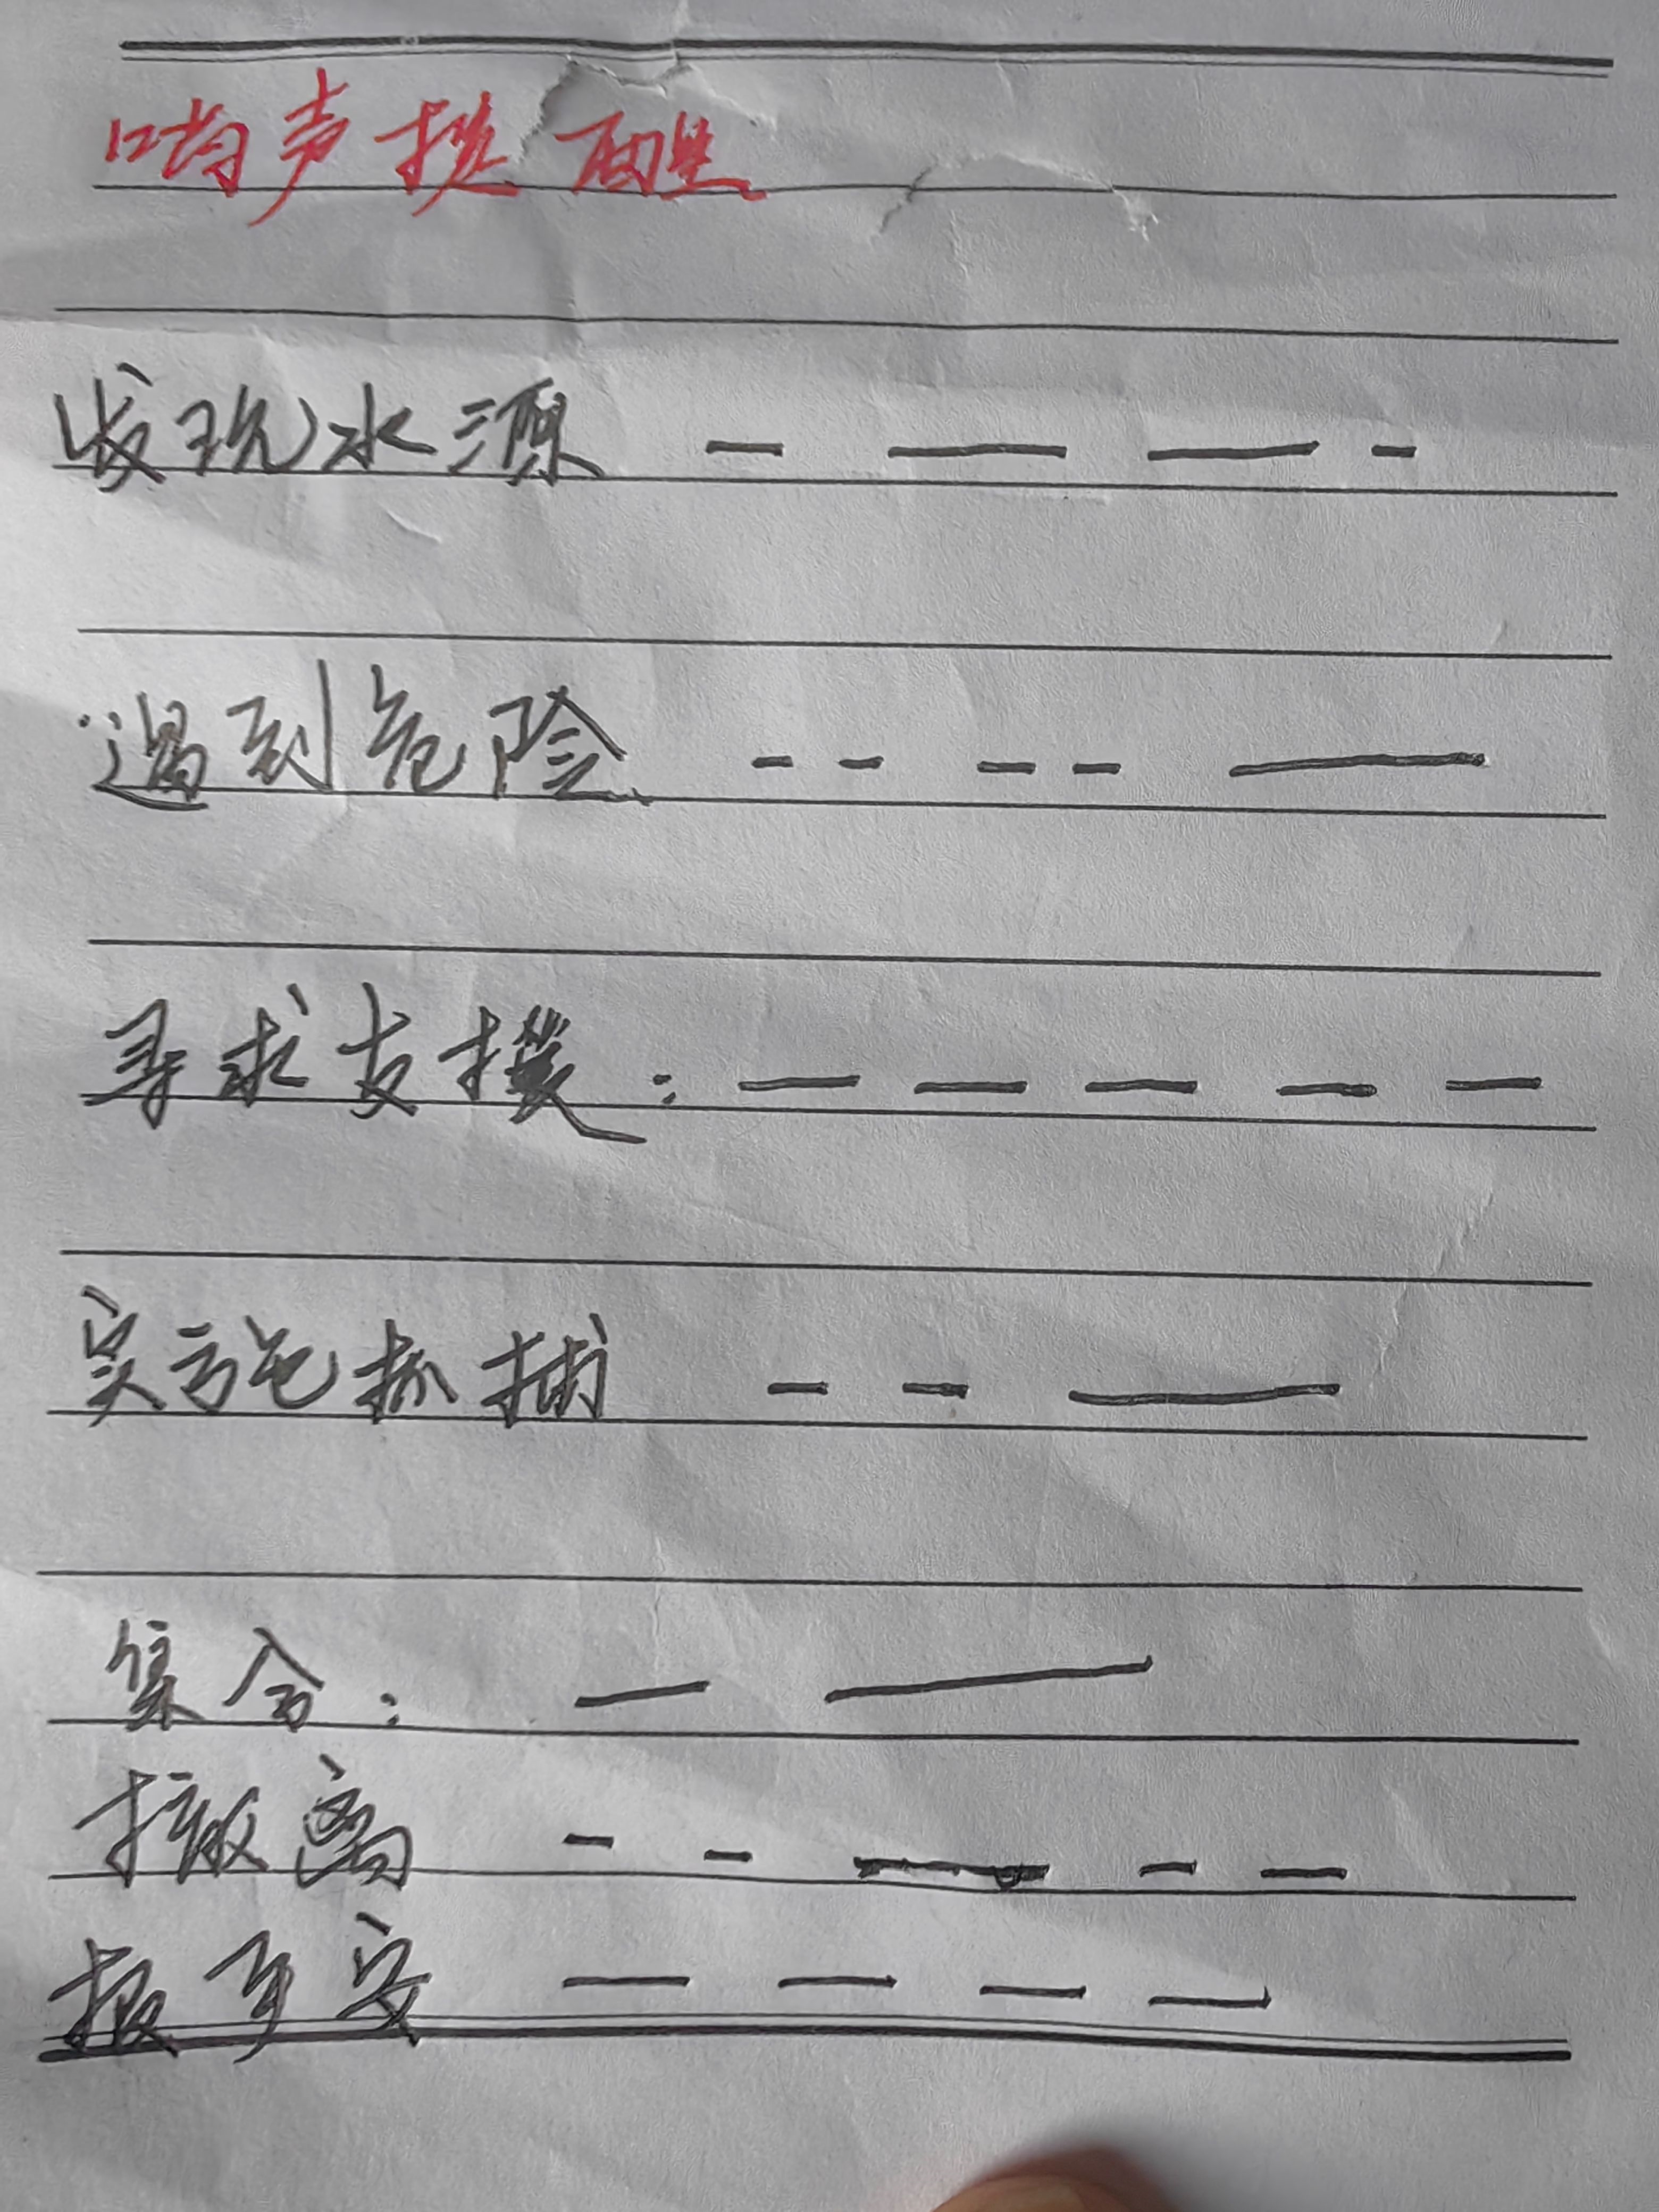 哨声提醒
发现水源 — — — -
遇到危险 - - - - —
寻求支援: — — — — —
实施抓捕 - - —
集合: — —
撤离 - - — - -
报平安 — — — —